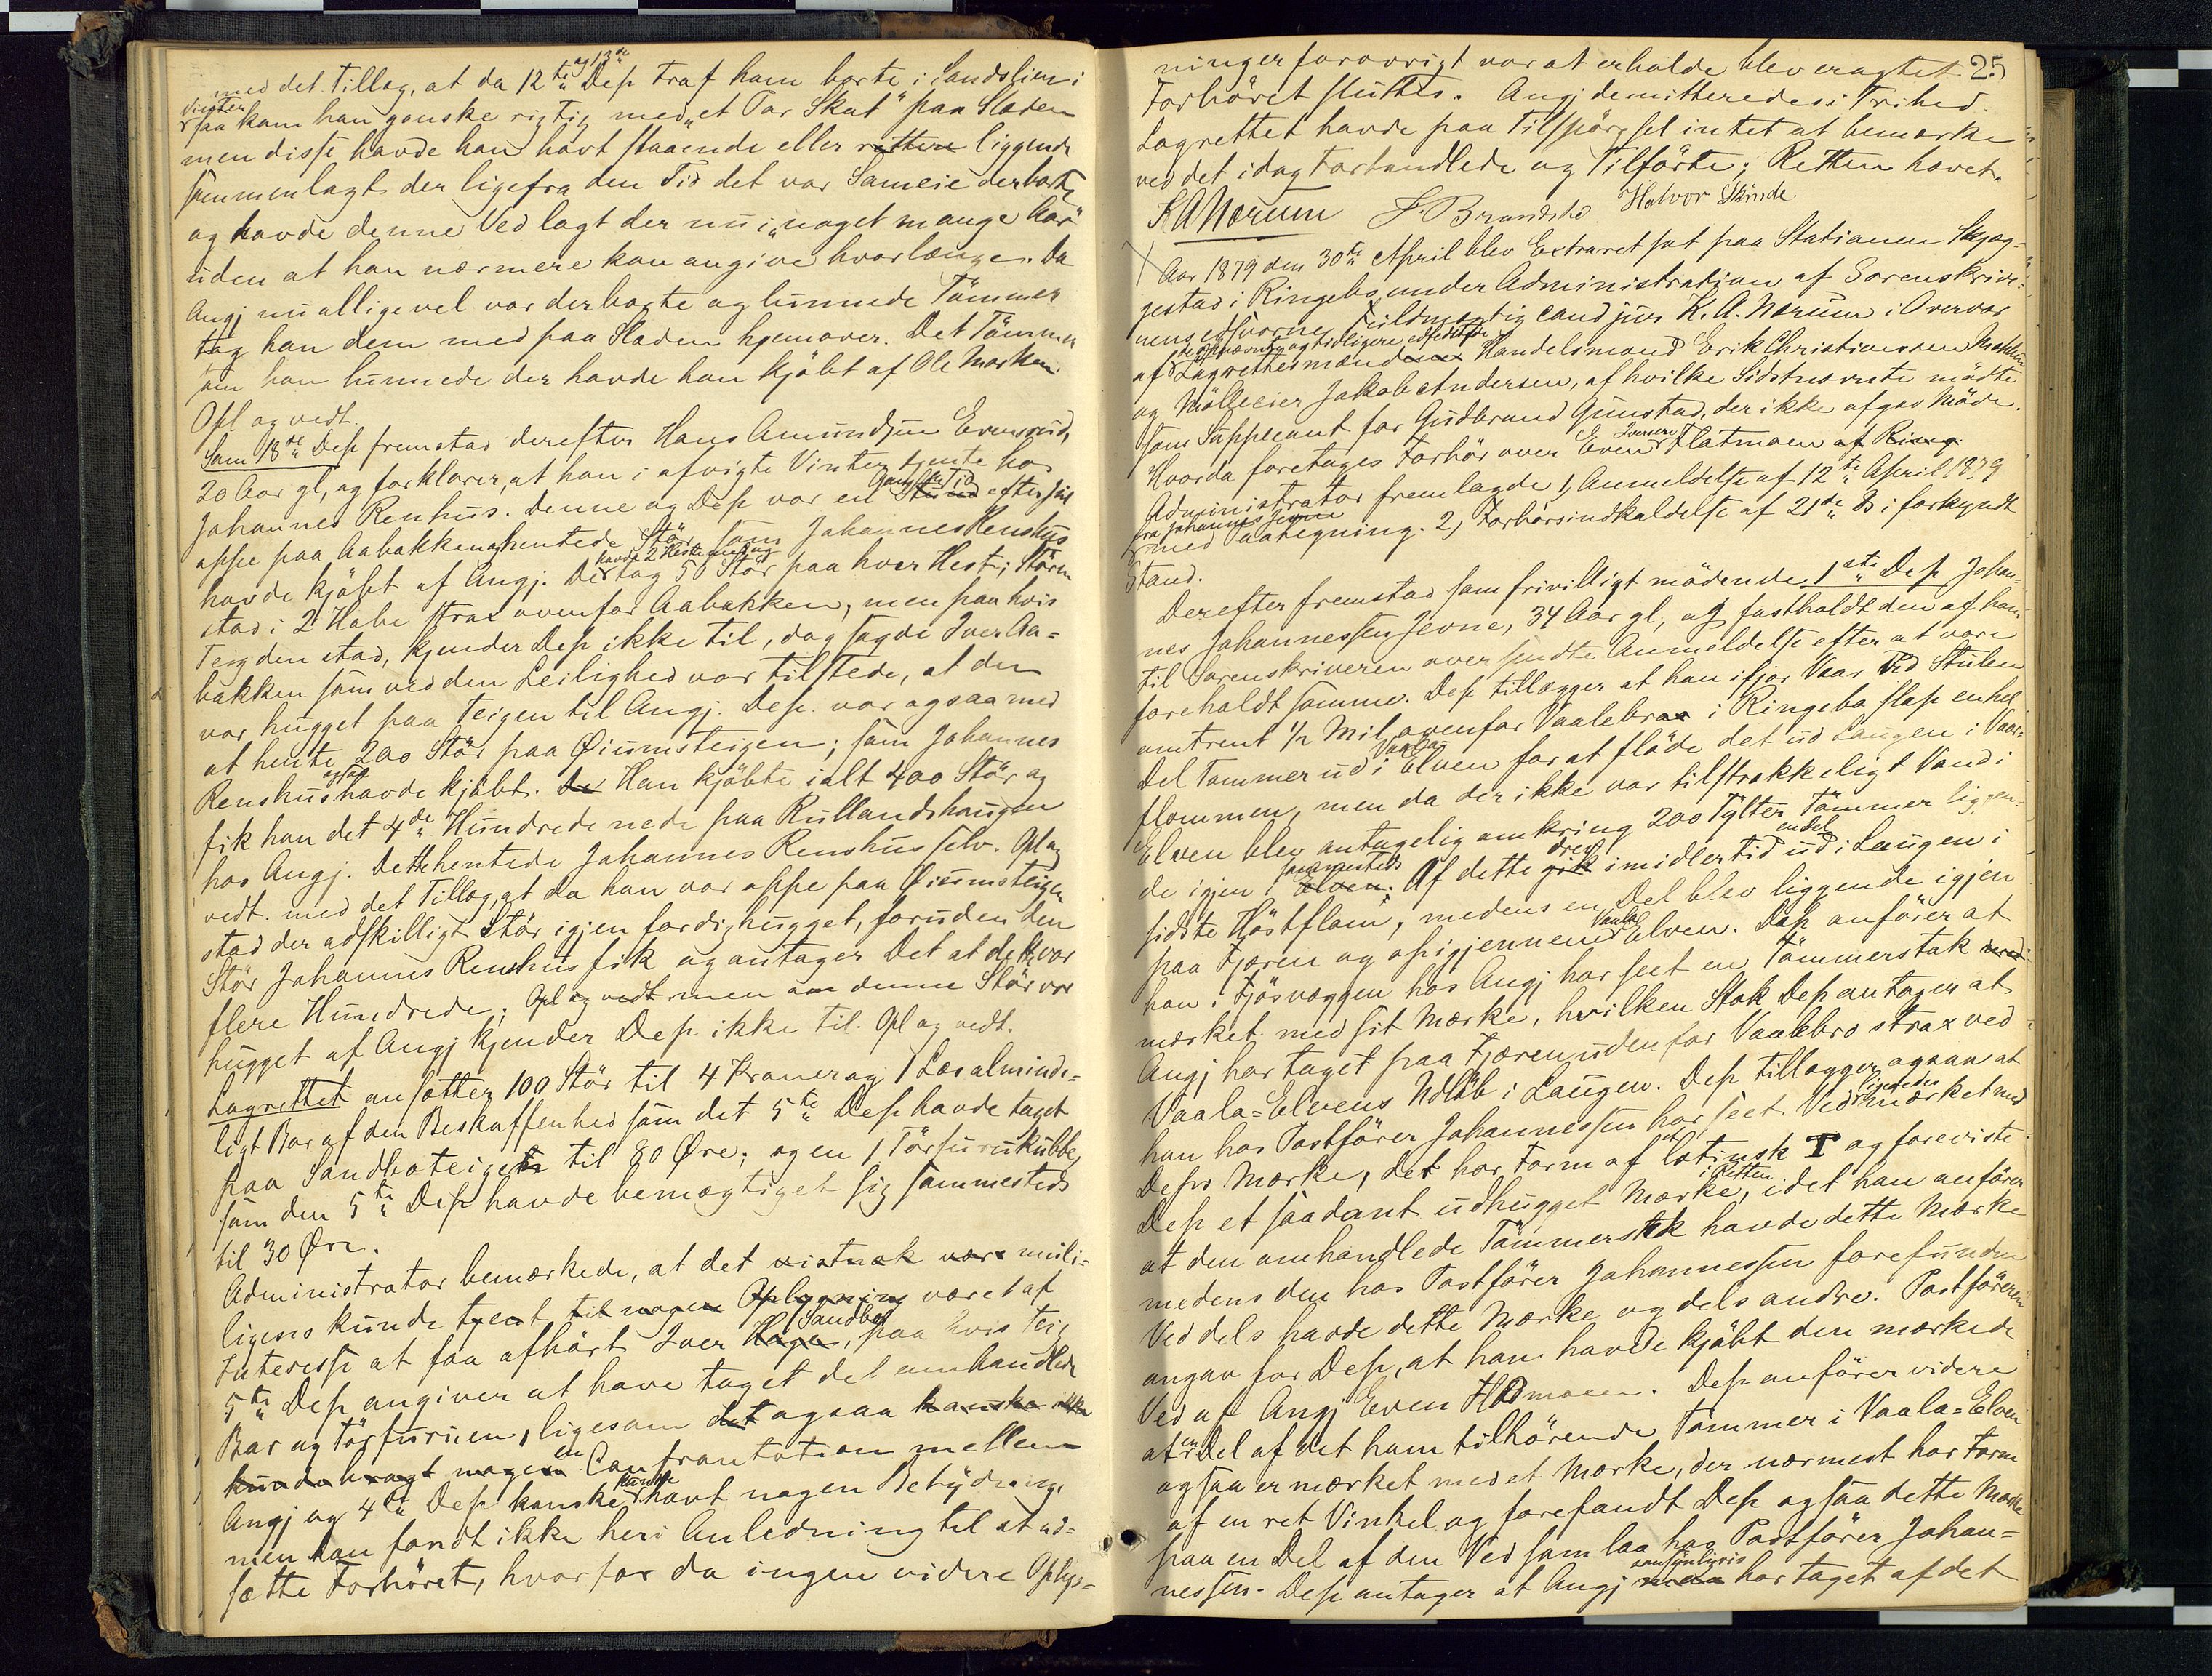 med det Tillæg, at da 12te og 13de Dep traf ham borte i Sandslien i
Vinter saa kom han ganske rigtig med "et Par Skat" paa Slæden
men disse havde han havt staaende eller rettere liggende
sammenlagt der ligefra den Tid det var Sameie derborte
og havde denne Ved lagt der nu i "noget mange Aar"
uden at han nærmere kan angive hvorlænge. Da
Angj nu alligevel var derborte og lunnede Tömmer
tog han dem med paa Slæden hjemover. Det Tömmer
som han lunnede der havde han kjöbt af Ole Moshem.
Opl og vedt.
Som 18de Dep fremstod derefter Hans Amundsen Evensrud,
20 Aar gl, og forklarer, at han i afvigte Vinter tjente hos
Johannes Renhus. Denne og Dep var en Ganske Tid efter Jul
oppe paa Aabakken og hentede Stör, som Johannes Renshus
havde kjöbt af Angj. De havde 2 Heste med og tog 50 Stör paa hver Hest; Stören
stod i 2 Habe strax ovenfor Aabakken, men paa hvis
Teig den stod, kjender Dep ikke til, dog sagde Iver Aa-
bakken som ved den Leilighed var tilstede, at den
var hugget paa Teigen til Angj. Dep. var ogsaa med
at hente 200 Stör paa Øiumsteigen; som Johannes
Renshus ogsaa havde kjöbt. De Han kjöbte ialt 400 Stör og
fik han det 4de Hundrede nede paa Rullandshaugen
hos Angj. Dette hentede Johannes Renshus selv. Opl og
vedt. med det Tillæg, at da han var oppe paa Øiumsteigen
stod der adskilligt Stör igjen færdighugget, foruden den
Stör Johannes Renshus fik og antager Det at dette var
flere Hundrede; Opl og vedt men om denne Stör var
hugget af Angj kjender Dep ikke til. Opl og vedt.
Lagrettet ansætter 100 Stör til 4 Kroner og 1 Læs alminde-
ligt Bar af den Beskaffenhed som det 5te Dep havde taget
paa Sandboteigen til 80 Øre; og en 1 Törfurukubbe,
som den 5te Dep havde bemægtiget sig sammesteds
til 30 Øre.
Administrator bemærkede, at det vistnok være muli-
ligens kunde tjent til nogen Oplysning været af
Interesse at faa afhört Iver Sandbo, paa hvis Teig
5te Dep angiver at have taget det omhandlede
Bar og törfuruen, ligesom det ogsaa kanske ikke
kunde bragt nogen en Confrontation mellem
Angj og 4de Dep kanske kunde havt nogen Betydning,
men han fandt ikke heri Anledning til at ud-
sætte Forhöret, hvorfor da ingen videre Oplys-
25
ninger forøvrigt var at erholde blev eragtet
Forhöret sluttet. Angj demitteredes i Frihed.
Lagrettet havde paa Tilspörgsel intet at bemærke
ved det idag Forhandlede og Tilförte; Retten hævet.
K A Nærum L. Brandstad Halvor Skinde.
Aar 1879 den 30te April blev Extraret sat paa Stationen Skjæg-
gestad i Ringebo under Administration af Sorenskrive-
rens edsvorne Fuldmægtig cand jur K. A. Nærum i Overvær
af de opnævnte og tidligere edfæstede Lagrettesmænd Handelsmand Erik Christiansen Moklum
og Mölleeier Jakob Andersen, af hvilke Sidstnævnte mödte
som Suppleant for Gudbrand Gunstad, der ikke afgav Möde.
Hvorda foretages Forhör over Even Iversen Flatmoen af Ring
Administrator fremlagde 1, Anmeldelse af 12te April 1879
fra Johannes Jevne med Paategning. 2, Forhörsindkaldelse af 21de Ds i forkyndt
Stand.
Derefter fremstod som frivilligt mödende 1ste Dep Johan-
nes Johannessen Jevne, 34 Aar gl, og fastholdt den af ham
til Sorenskriveren oversendte Anmeldelse efter at være
foreholdt samme. Dep tillægger at han ifjor Vaar ved Stulen
omtrent 1/2 Mil ovenfor Vaalebroa i Ringebo slap en hel
Del Tømmer ud i Vaala Elven for at flöde det ud Laugen i Vaar-
flommen, men da der ikke var tilstrækkeligt Vand i
Elven blev antagelig omkring 200 Tylter Tömmer liggen-
de igjen i sammesteds Elven. Af dette gik drev imidlertid endel ud i Laugen i
sidste Höstflom, medens en Del blev liggende igjen
paa Fjæren og opigjennem Vaala Elven. Dep anförer at
han i Fjösvæggen hos Angj har seet en Tömmerstok med
mærket med sit Mærke, hvilken Stok Dep antager at
Angj har taget paa Fjæren udenfor Vaalebro strax ved
Vaala-Elvens Udløb i Laugen. Dep tillægger ogsaa at
han hos Postförer Johannessen har seet Ved ligeledes mærket med
Deps Mærke, det har Form af et latinsk T og foreviste
Dep et saadant udhugget Mærke, i Retten idet han anförer
at den omhandlede Tömmerstok havde dette Mærke
medens den hos Postförer Johannessen forefundne
Ved dels havde dette Mærke og dels andre. Postföreren
angav for Dep, at han havde kjöbt den mærkede
Ved af Angj Even Flatmoen. Dep anförer videre
at en Del af det ham tilhörende Tömmer i Vaala-Elven
ogsaa er mærket med et Mærke, der nærmest har Form
af en ret Vinkel og forefandt Dep ogsaa dette Mærke
paa en Del af den Ved som laa hos Postförer Johan-
nessen. Dep antager at Angj sansynligvis har taget af det